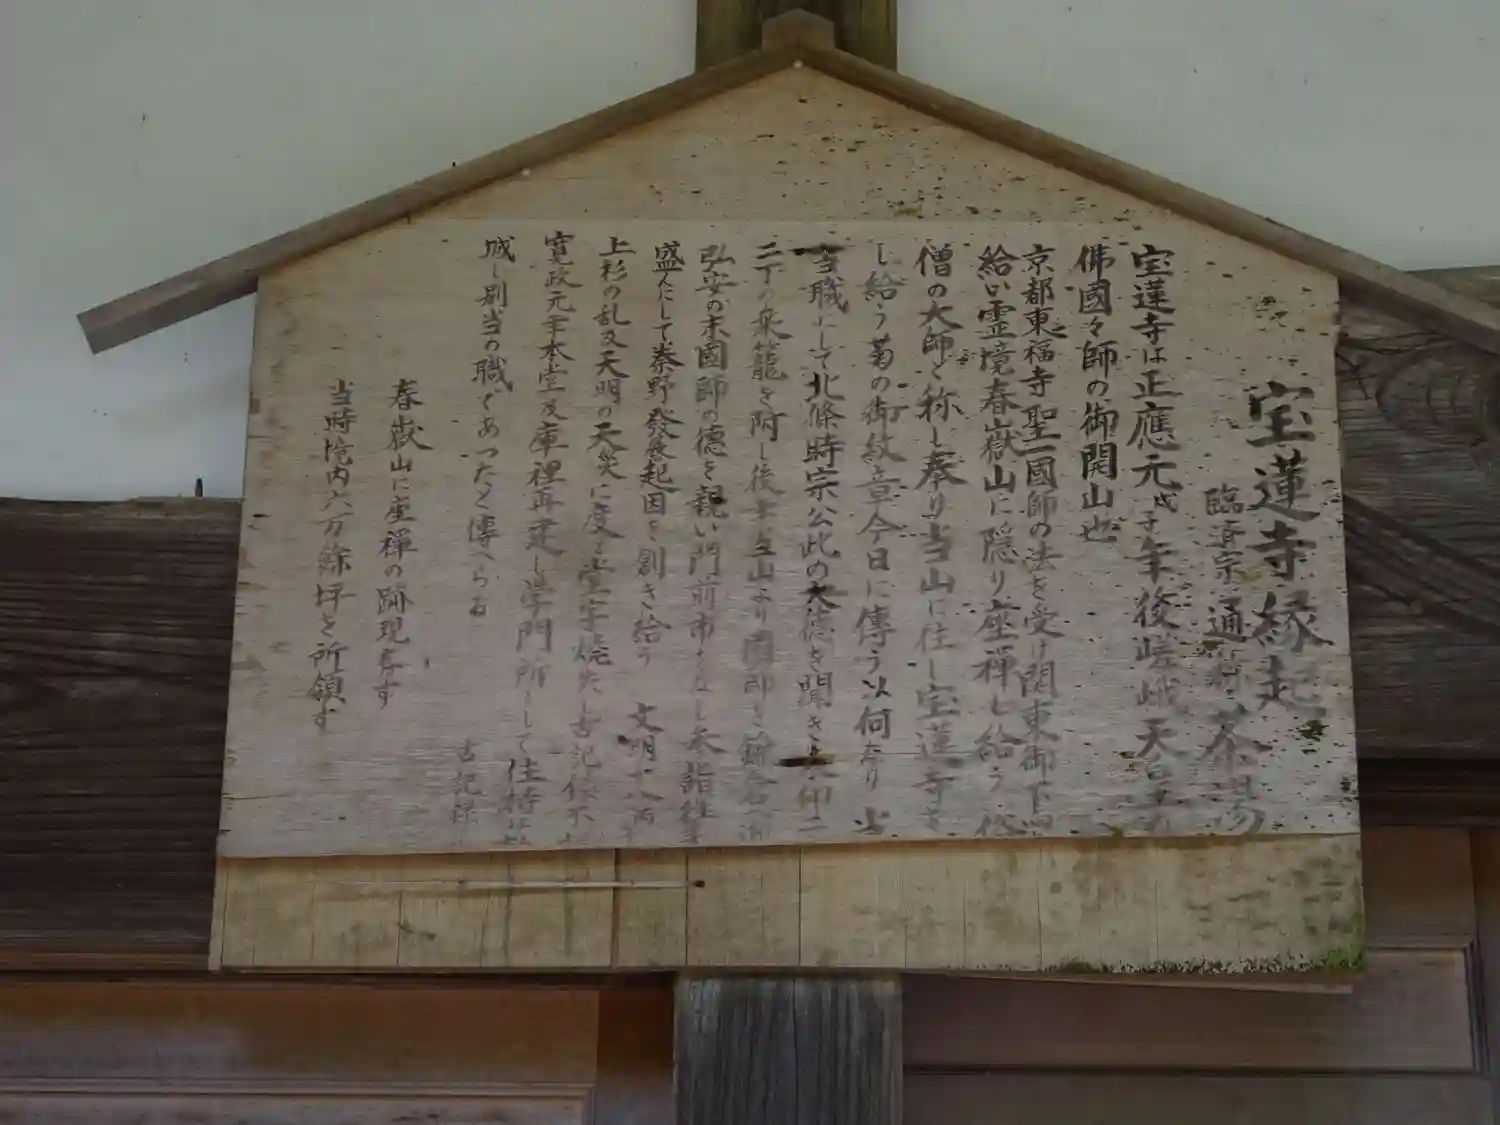 宝蓮寺縁起
臨済宗 通称 茶湯
宝蓮寺は正應元戊子年後嵯峨天皇
佛國々師の御開山也
京都東福寺聖一國師の法を受け関東御下
給い霊境春嶽山に隠り座禅し給う
僧の大師と称し奉り当山に住し宝蓮寺と
し給う菊の御紋章今日に傳う以何なり 当
当職にして北條時宗公此の大徳を聞き
二丁の乗籠を附し後年当山より國師を鎌倉
弘安の末國師の德を親い門前市をなし参詣往
盛んにして秦野發展起因を創き給う 文明十八丙
上杉の乱及天明の天災に度々堂宇焼失し古記録不
寛政元年本堂及庫裡再建し学門所として住持
城し別当の職でありたと傳へらる
古記録
春嶽山に座禅の跡現存す
当時境内六万餘坪を所領す